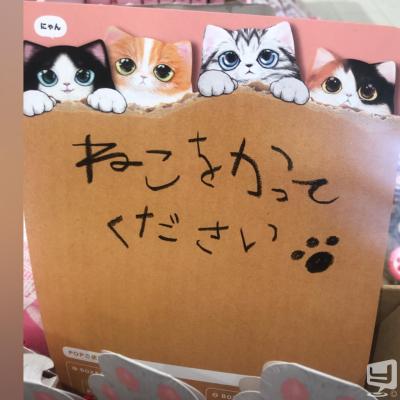 にゃん
ねこをかって
ください